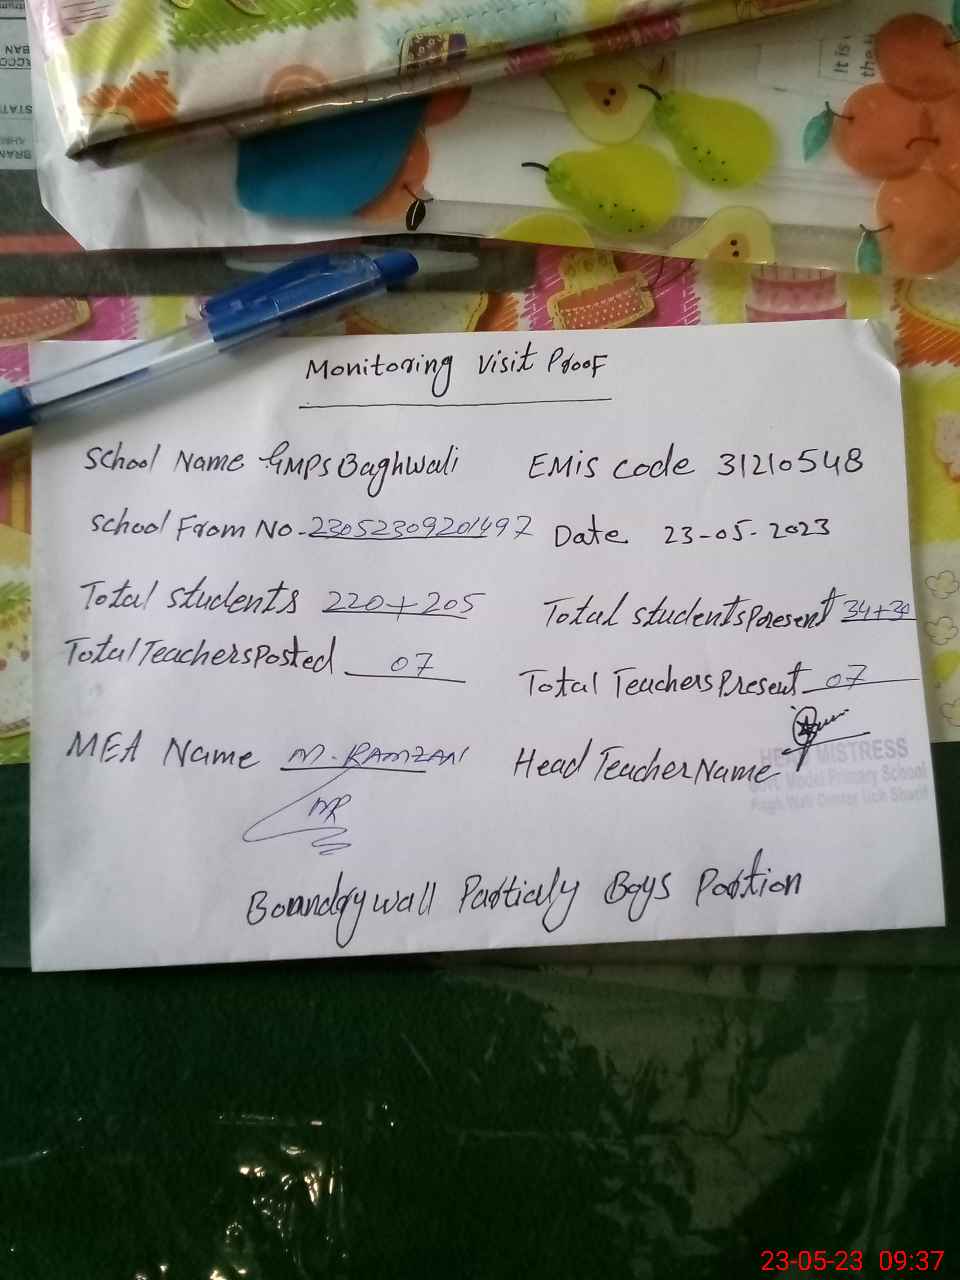 It is
the
Monitoring Visit Proof
School Name GMPS Baghwali EMis code 31210548
School From No. 23052309201497 Date 23-05-2023
Total students 220+205 Total students Present 34+30
Total Teachers Posted 07 Total Teachers Present 07
MEA Name M. RAMZAN Head Teacher Name
MR
HEAD MISTRESS
Govt. Model Primary School
Bagh Wali Center Uch Sharif
Boundry wall Partialy Boys Portion
23-05-23 09:37